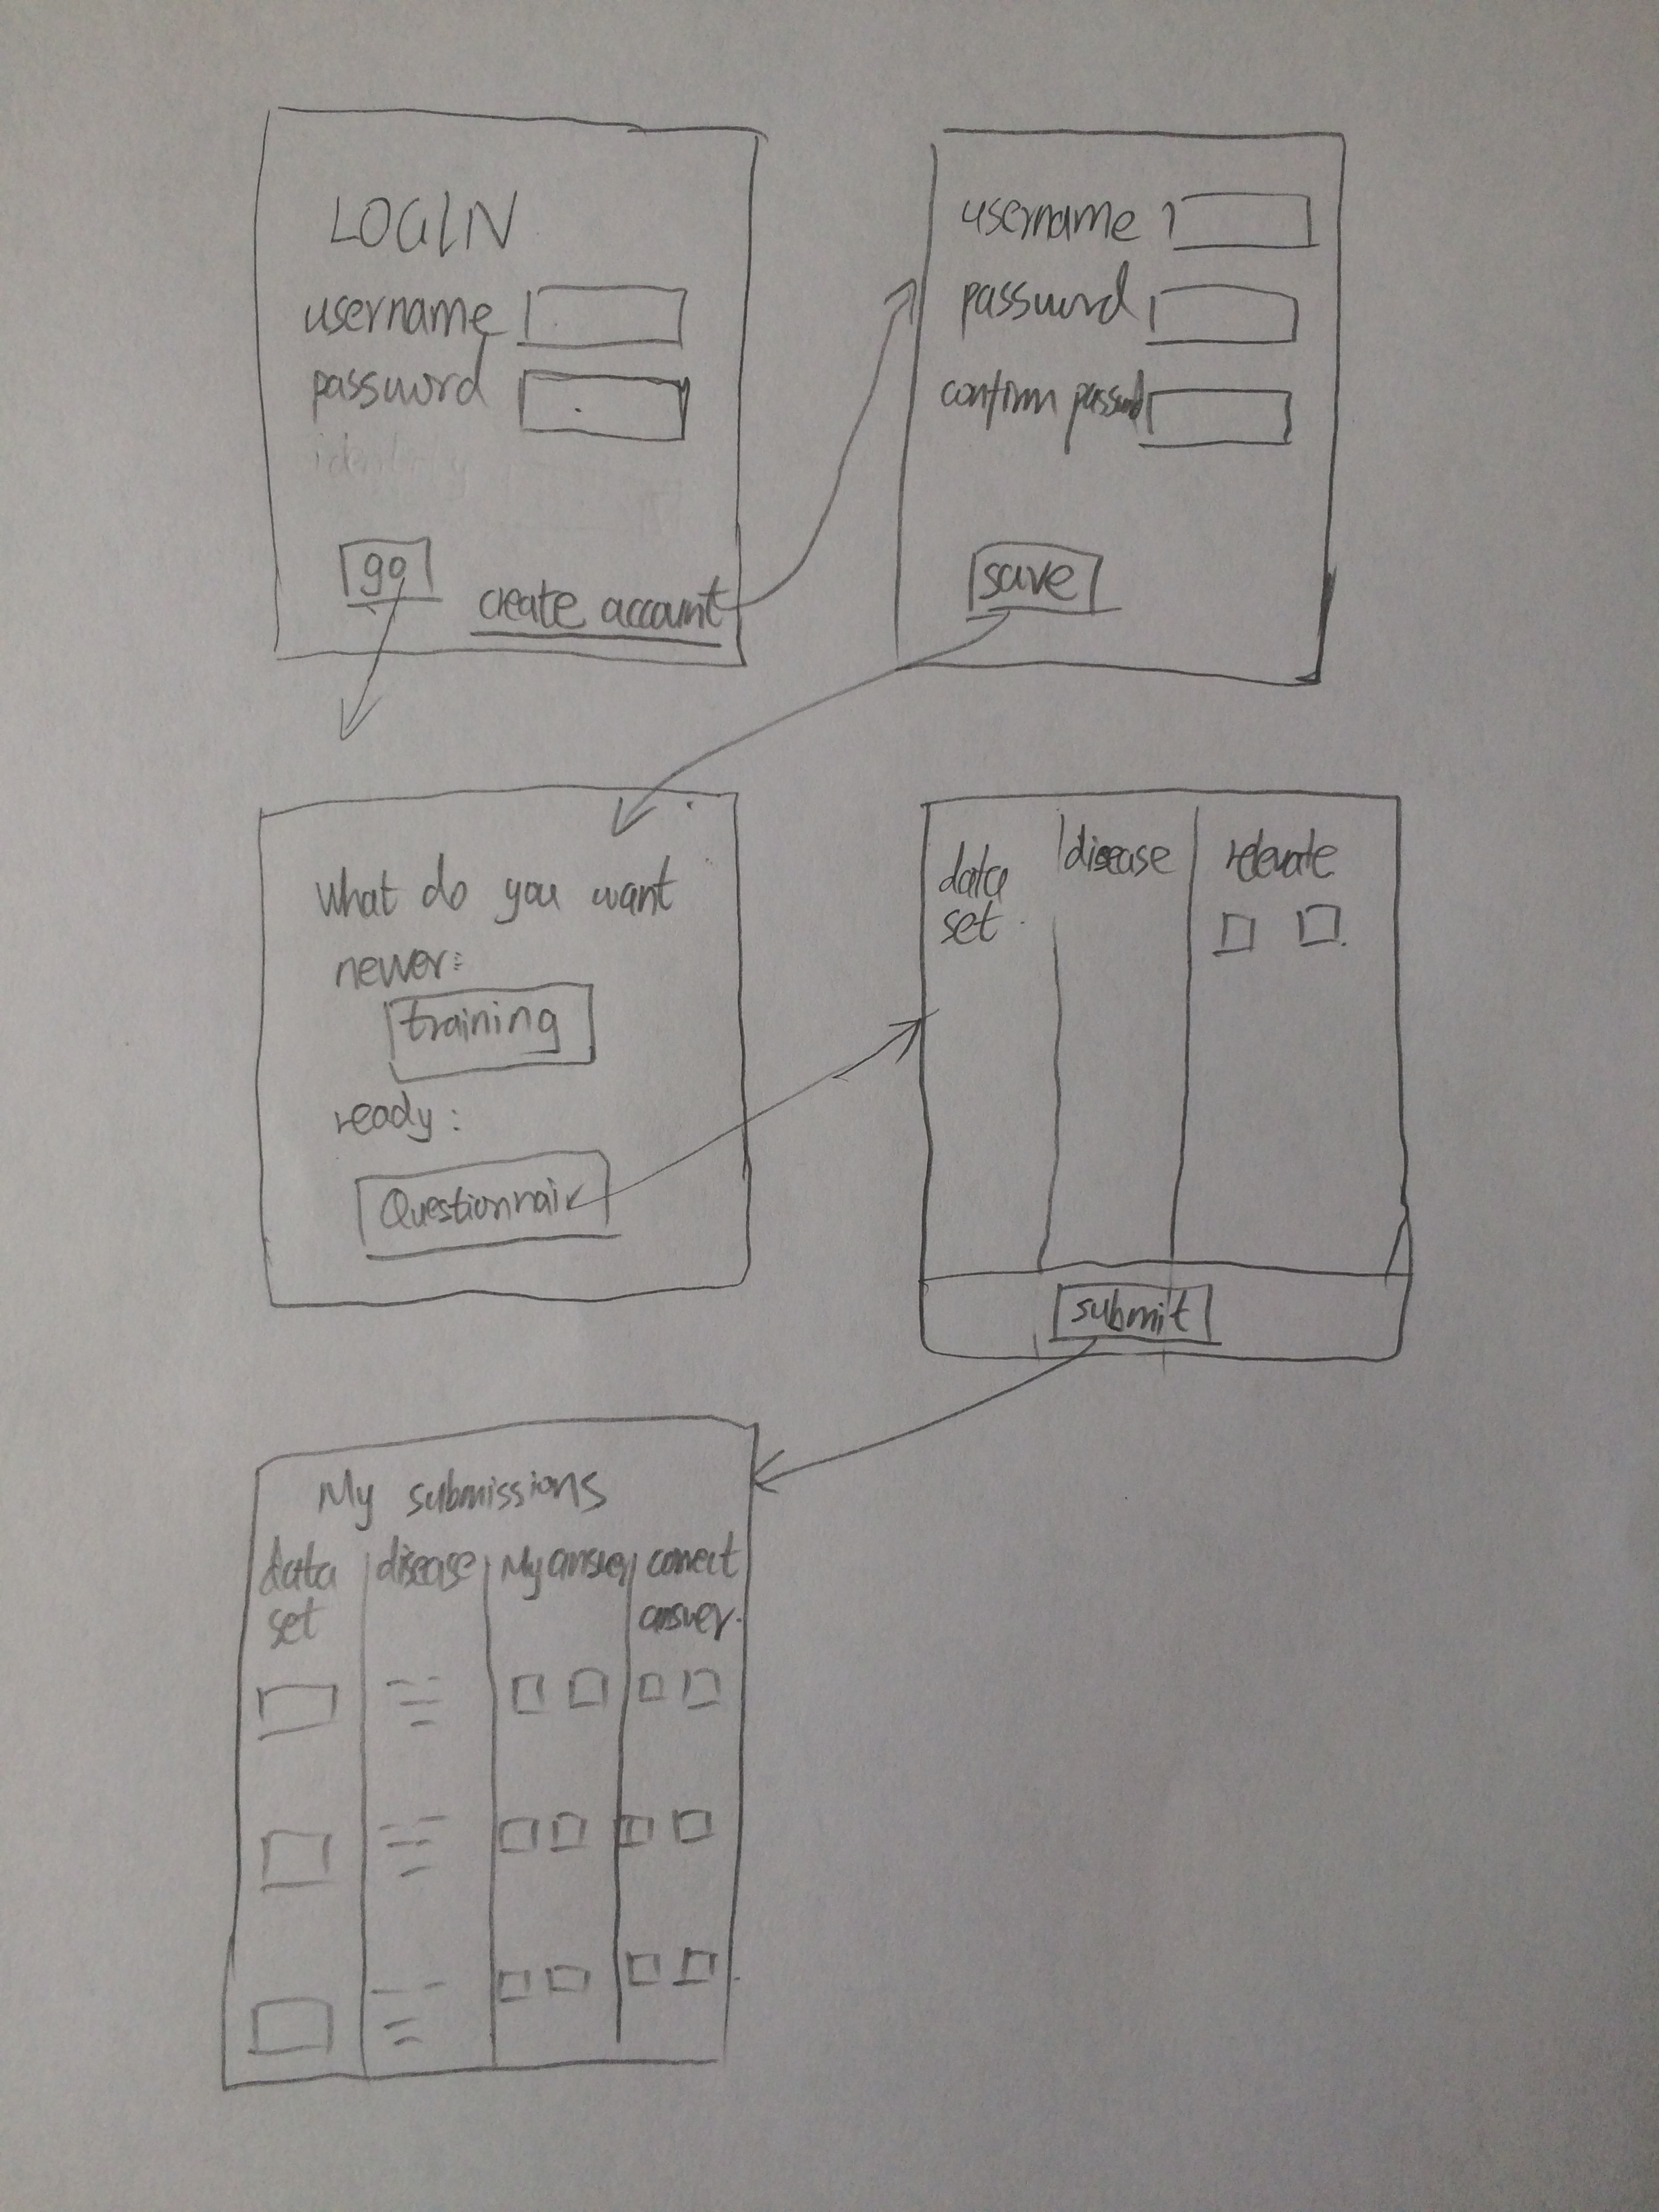 LOGIN
username
password
go
create account
username
password
confirm passwd
save
What do you want
newer:
training
ready:
Questionnair
data
set
disease
relevate
submit
My submissions
data
set
disease
My answer
correct
answer.